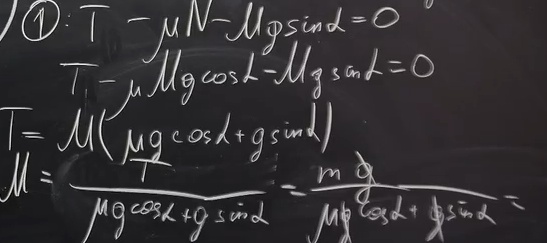 1: T - μN - Mg sinα = 0
T - μMg cosα - Mg sinα = 0
T = M(μg cosα + g sinα)
M = T / (μg cosα + g sinα) = mg / (μg cosα + g sinα) =